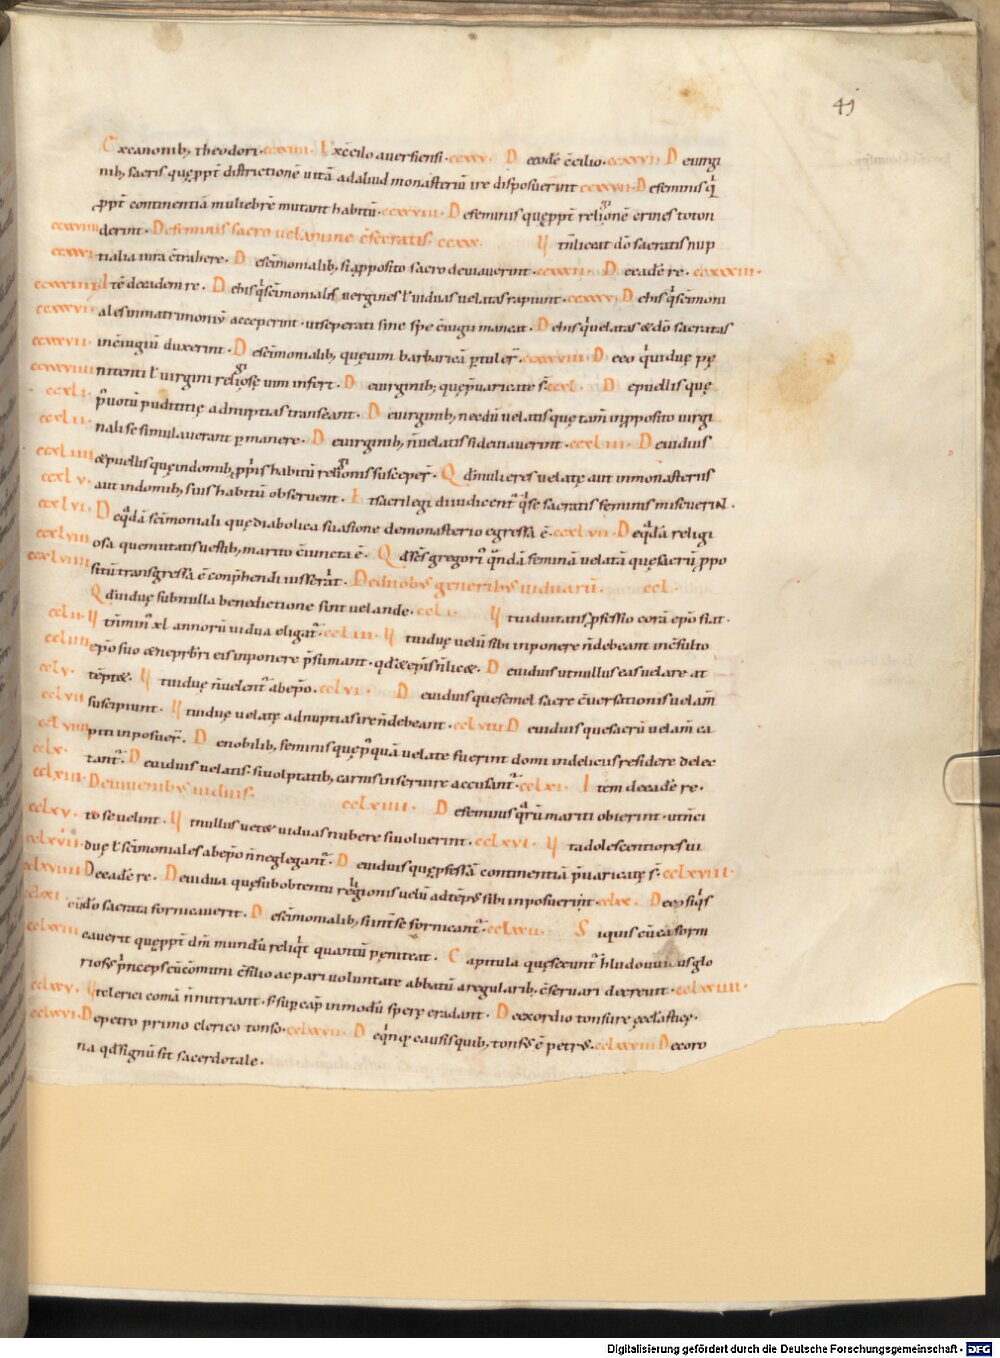 49
Excanonib; theodori · ccxxiiii · Exc̄cilo auersiensi · ccxxv · D eeodē c̄cilio · ccxxvi · D euirgi
nib; sacris quęppt̄ districtionē uitā adaliud monasteriū ire disposuerint ccxxvii · D efeminis q̄
ppt̄ continentiā muliebrē mutant habitū · ccxxviii · D efeminis quęppt̄ religionē crines toton
ccxxviiii derint · De feminis sacro uelamine c̄secratis · ccxxx · Ut n̄liceat do sacratis nup
ccxxxi tialia iura c̄trahere · D escīmonialib; si apposito sacro deuiauerint · ccxxxii · D eeadē re · ccxxxiii ·
ccxxxiiii Itē deeadem re · D ehis q̄ scīmoniales uergines ł uiduas uelatas rapiunt · ccxxxv · D ehis q̄ scīmoni
ccxxxvi ales inmatrimoniū acceperint · utseperati sine spe c̄iugii maneat · D ehis q̄ uelatas & dō sacratas
ccxxxvii inc̄iugiū duxerint · D escīmonialib; quęuim barbaricā ptuler̄ · ccxxxviii · D eeo qui due pę
ccxxxviiii nitenti ł uirgini religiosę uim infert · D euirginib; quępuaricate s̄ · ccxl · D epuellis quę
ccxli · p̄uotū pudititię adnuptias transeant · D euirginib; necdū uelatis quę tam̄ inpposito uirgi
ccxlii · nali se simulauerant pmanere · D euirginib; n̄uelatis si deuiauerint · ccxliii · D euiduis
ccxliiii & puellis quę indomib; pp̄is habitū religionis susceper̄ · Q d̄mulieres uelatę aut inmonasteriis
ccxlv · aut indomib; suis habitū obseruent · Ut sacrilegi diiudicent̄ q̄ se sacratis feminis miscuerint ·
ccxlvi · D eqdā scīmoniali quę diabolica suasione demonasterio egressa ē · ccxlvii · D eqdā religi
ccxlviii osa quemutatis uestib; marito c̄iuncta ē · Q d scs̄ gregori q̄ndā feminā uelatā quęsacrū ppo
ccxlviiii situ transgressa ē conphendi iusserat · De duobus generibus uiduarū · ccl ·
Q d uiduę subnulla benedictione sint uelande · ccli · Ut uiduitatis pfessio corā epō fiat ·
cclii · Ut n̄ min xl annorū uidua eligat̄ · ccliii · Ut uiduę uelū sibi inponere n̄debeant inc̄sulto
ccliiii epō suo & nep̄rbri eis inponere p̄sumant · qd & epīs n̄lic& · D euiduis utnullus eas uelare at
cclv · tēpt& · Ut uiduę n̄uelent̄ abepō · cclvi · D euiduis quesemel sacre c̄uersationis uelam̄
cclvii suscipiunt · Ut uiduę uelatę adnuptias iren̄debeant · cclviii D euiduis quesacrū uelam̄ ca
cclviiii piti inposuer̄ · D enobilib; feminis quę p̄quā uelate fuerint domi indeliciis residere delec
cclx · tant̄ · D euiduis uelatis · si uolptatib; carnis inseruire accusant̄ · cclxi · Itēm deeadē re ·
cclxiii · Deiuuenibus uiduis · cclxiiii · D efeminis q̄rū mariti obierint · utn̄ci
cclxv · to seuelint · Ut nullus uetet uiduas nubere siuoluerint · cclxvi · Ut adolescentiores ui
cclxvii duę ł scīmoniales abepō n̄neglegant̄ · D euiduis quępfessā continentiā p̄uaricatę s̄ · cclxviii ·
cclxviiii Deeadē re · D euidua quęsubobtentu religionis uelū adtēpus sibi inposuerint · cclxx · Deeo siq̄s
cclxxi · cū dō sacrata fornicauerit · D escīmonialib; si int̄se fornicant̄ · cclxxii · Siquis cū ea forn
cclxxiii cauerit quęppt̄ dm̄ mundū reliq̄t quantū peniteat · C apitula quęsecunt̄ hludouuicus glo
riosus p̄nceps cū c̄muni c̄silio ac pari uoluntate abbatū aregularib; c̄seruari decreuit · cclxxiiii ·
cclxxv · Ut clerici comā n̄nutriant · s; sup cap̄ inmodū sperę eradant · D eexordio tonsure ęcclasticę ·
cclxxvi · Depetro primo clerico tonso · cclxxvii · D eq̄nq; causis quib; tonsus ē petrus · cclxxviii Decoro
na qd signū sit sacerdotale ·
Digitalisierung gefördert durch die Deutsche Forschungsgemeinschaft - DFG